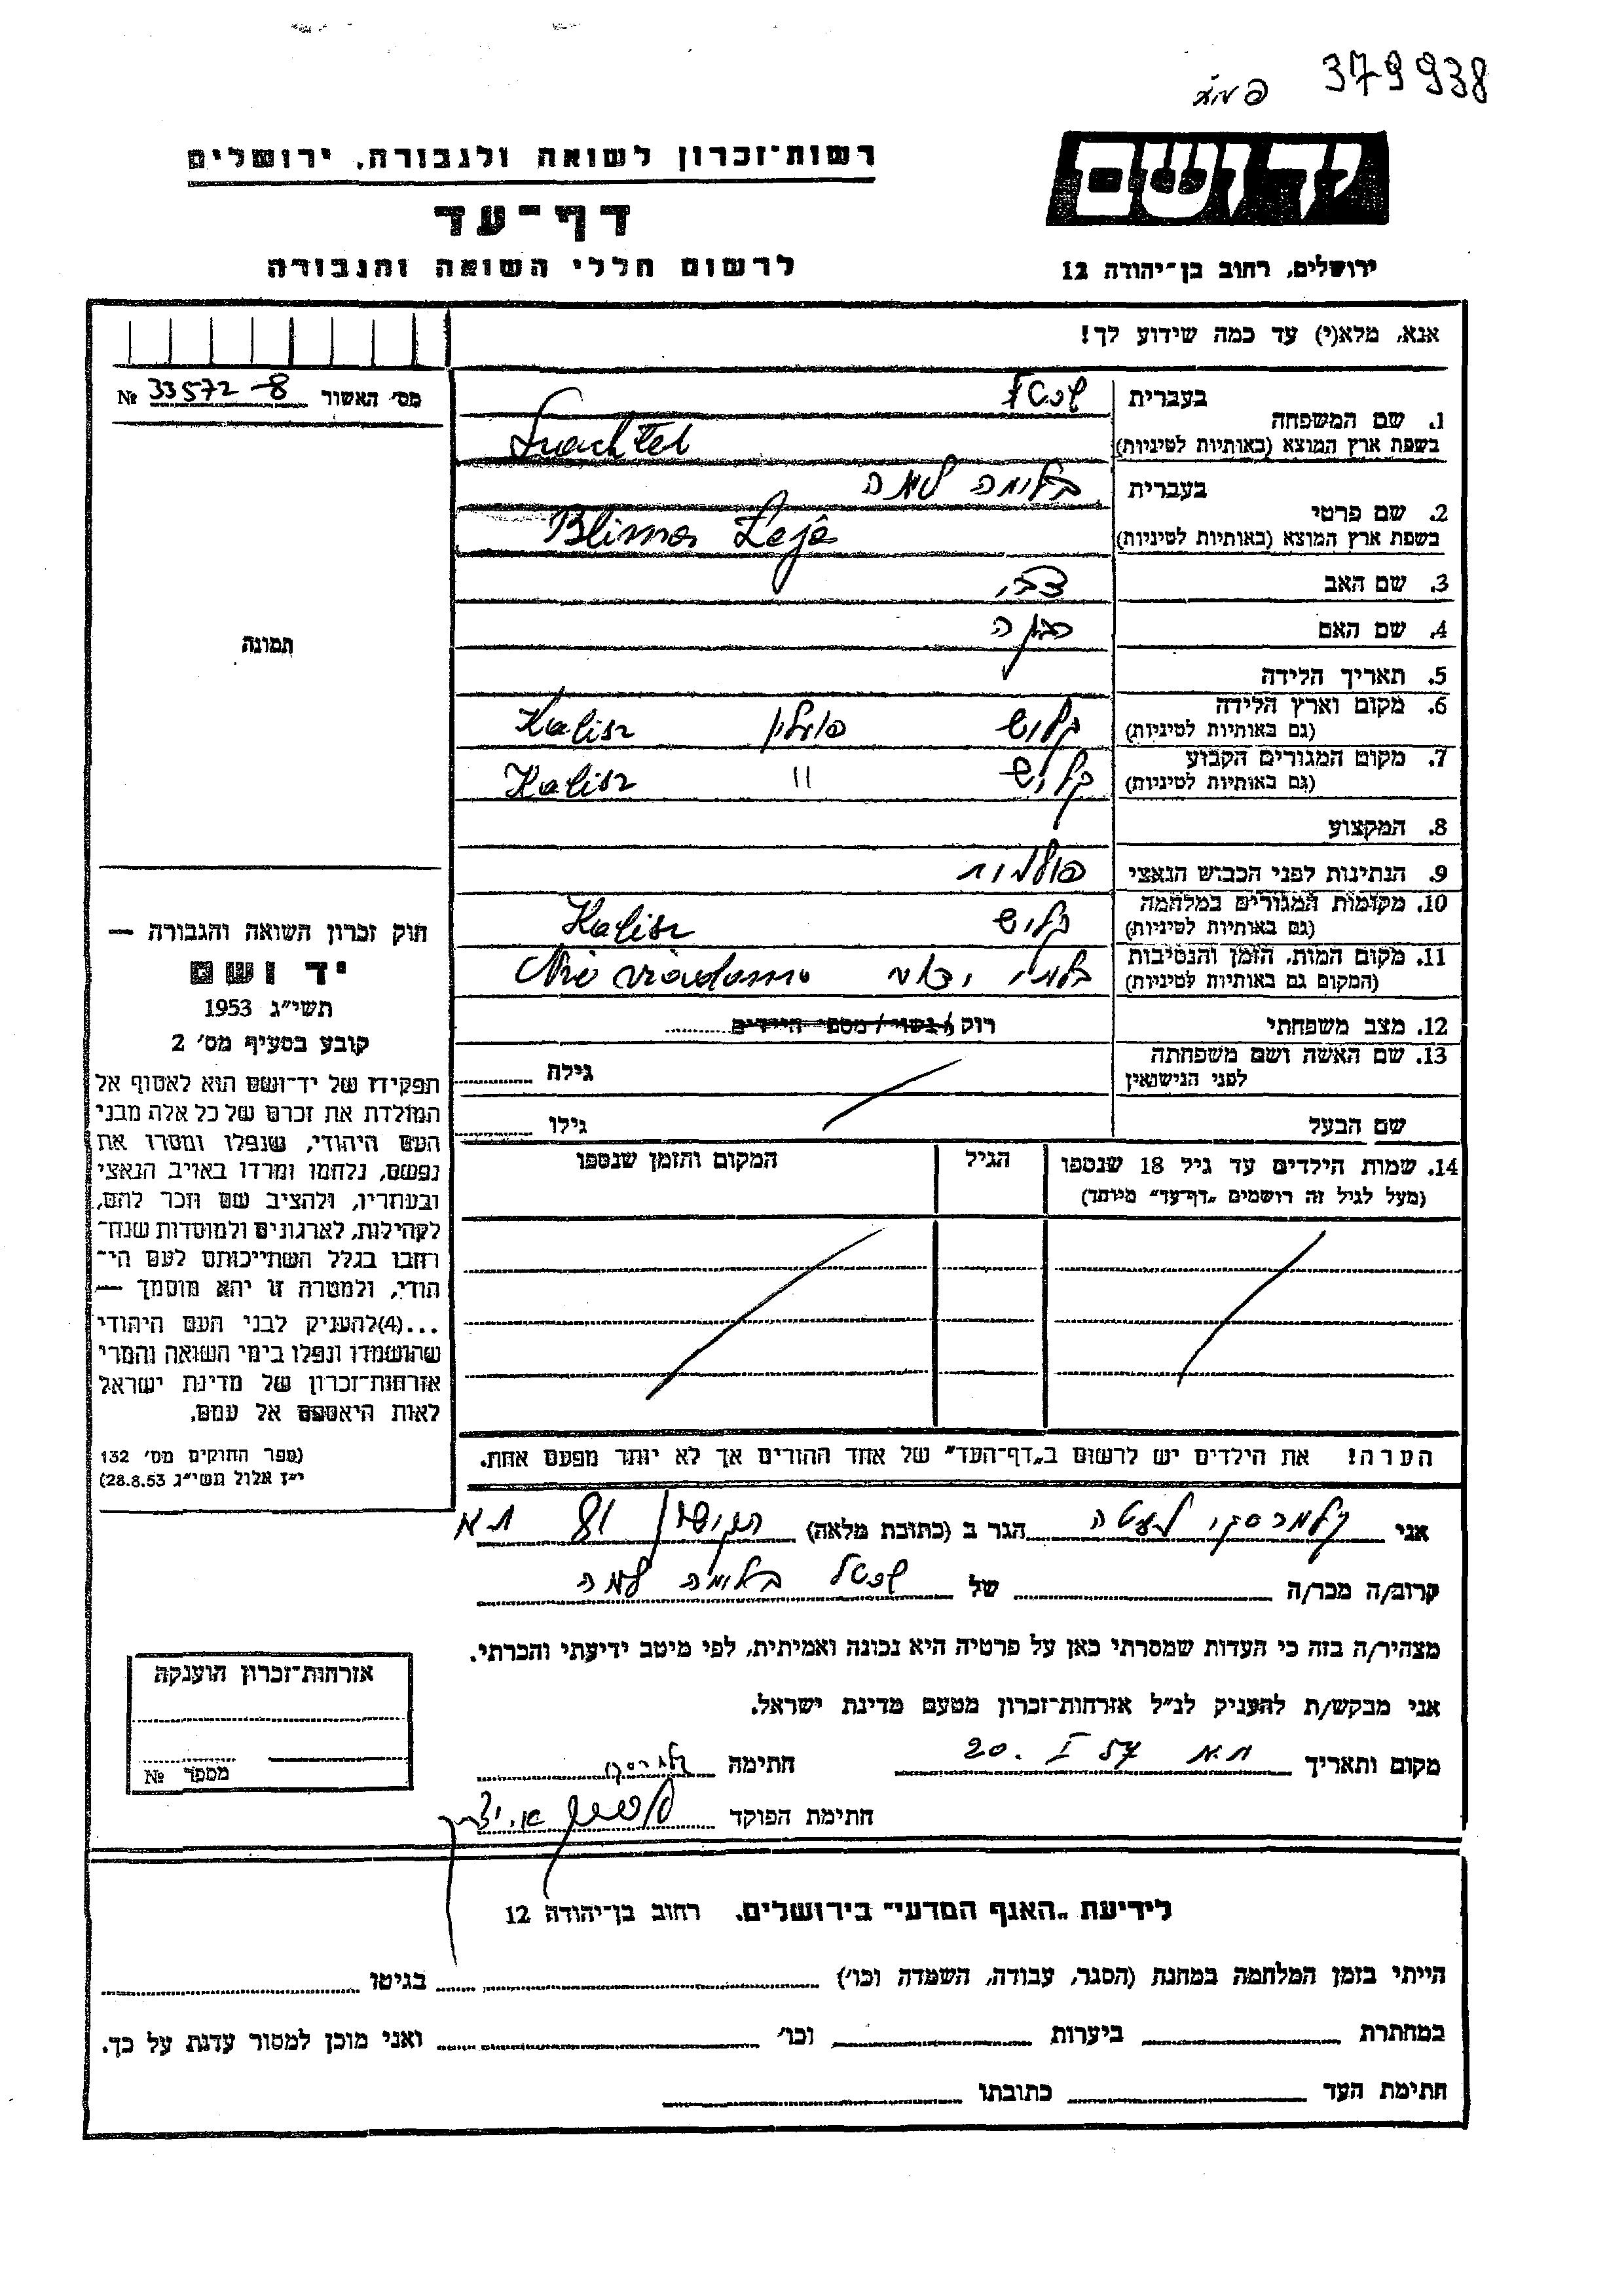 379938
יד ושם
רשות־זכרון לשואה ולגבורה, ירושלים
דף־עד
לרשום חללי השואה והגבורה
ירושלים, רחוב בן־יהודה 12
אנא, מלא(י) עד כמה שידוע לך!
מס׳ האשור № 33572-8
1. שם המשפחה
בעברית
בשפת ארץ המוצא (באותיות לטיניות)
2. שם פרטי
בעברית בלומה לאה
בשפת ארץ המוצא (באותיות לטיניות) Blima Leja
3. שם האב צבי
4. שם האם רבקה
5. תאריך הלידה
6. מקום וארץ הלידה
(גם באותיות לטיניות) קליש פולין Kalisz
7. מקום המגורים הקבוע
(גם באותיות לטיניות) קליש 11 Kalisz
8. המקצוע
9. הנתינות לפני הכבוש הנאצי פולנית
10. מקומות המגורים במלחמה
(גם באותיות לטיניות) קליש Kalisz
11. מקום המות, הזמן והנסיבות
(המקום גם באותיות לטיניות) בלתי ידוע Nie wiadomo
12. מצב משפחתי רווק/נשוי/מספר הילדים
13. שם האשה ושם משפחתה
לפני הנישואין גילה
שם הבעל גילו
14. שמות הילדים עד גיל 18 שנספו
(מעל לגיל זה רושמים „דף־עד״ מיוחד)
הגיל
המקום והזמן שנספו
הערה! את הילדים יש לרשום ב„דף־העד״ של אחד ההורים אך לא יותר מפעם אחת.
תמונה
חוק זכרון השואה והגבורה —
יד ושם
תשי״ג 1953
קובע בסעיף מס׳ 2
תפקידו של יד־ושם הוא לאסוף אל
המולדת את זכרם של כל אלה מבני
העם היהודי, שנפלו ומסרו את
נפשם, נלחמו ומרדו באויב הנאצי
ובעוזריו, ולהציב שם וזכר להם,
לקהילות, לארגונים ולמוסדות שנח־
רבו בגלל השתייכותם לעם הי־
הודי, ולמטרה זו יהא מוסמך —
...(4)להעניק לבני העם היהודי
שהושמדו ונפלו בימי השואה והמרי
אזרחות־זכרון של מדינת ישראל
לאות היאספם אל עמם.
(ספר החוקים מס׳ 132
י״ז אלול תשי״ג 28.8.53)
אני הגר ב (כתובת מלאה) ת״א
קרוב/ה מכר/ה של בלומה לאה
מצהיר/ה בזה כי העדות שמסרתי כאן על פרטיה היא נכונה ואמיתית, לפי מיטב ידיעתי והכרתי.
אני מבקש/ת להעניק לנ״ל אזרחות־זכרון מטעם מדינת ישראל.
מקום ותאריך ת״א 20. I 57 חתימה
חתימת הפוקד
אזרחות־זכרון הוענקה
מספר №
לידיעת „האגף המדעי״ בירושלים. רחוב בן־יהודה 12
הייתי בזמן המלחמה במחנה (הסגר, עבודה, השמדה וכו׳) בגיטו
במחתרת ביערות וכו׳ ואני מוכן למסור עדות על כך.
חתימת העד כתובתו